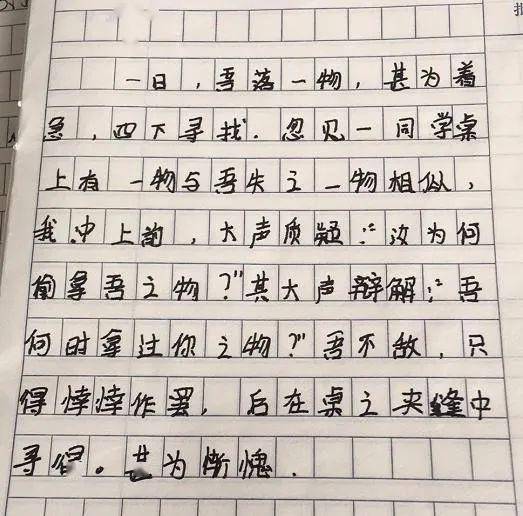 一日，吾落一物，甚为着
急，四下寻找．忽见一同学桌
上有一物与吾失之一物相似，
我冲上前，大声质疑：“汝为何
偷拿吾之物？”其大声辩解：“吾
何时拿过你之物？”吾不敌，只
得悻悻作罢，后在桌之夹缝中
寻得。甚为惭愧．